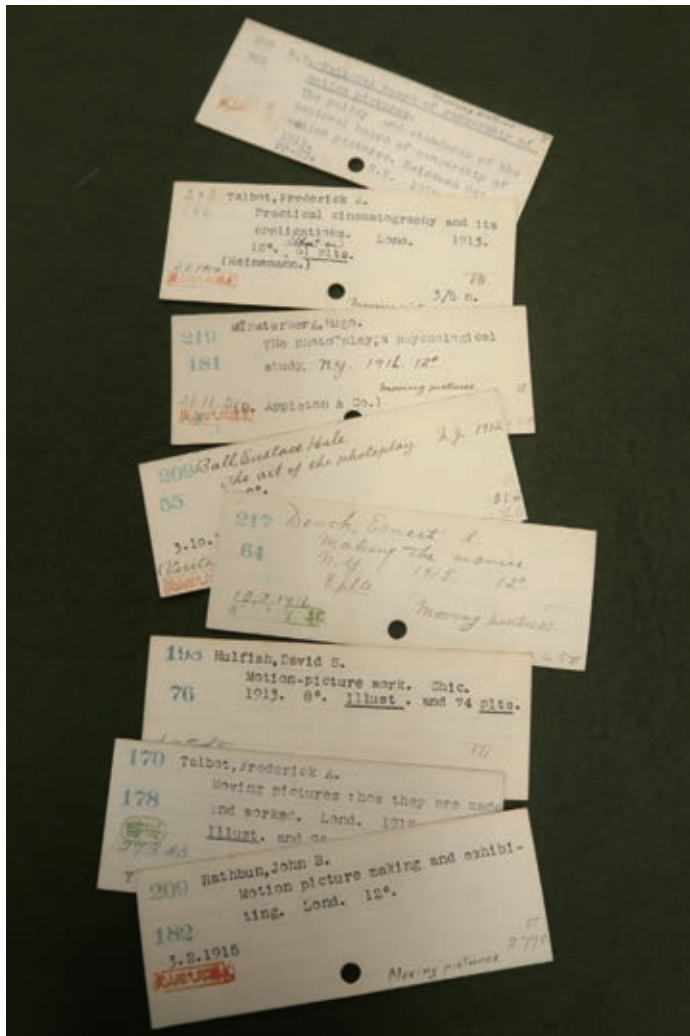 N.Y.-National board of censorship of
motion pictures.
The policy and standards of the
national board of censorship of
motion pictures. Reissued Oct.
1915.
N.Y.
Talbot,Frederick A.
Practical cinematography and its
applications. Lond. 1913.
12°. 61 plts.
(Heinemann.)
3/6 n.
219
Münsterberg,Hugo.
The photoplay;a psychological
181
study. N.Y. 1916. 12°
Moving pictures
(D. Appleton & Co.)
209 Ball, Eustace Hale
The art of the photoplay
55
3.10.
217 Dench, Ernest A.
Making the movies
64
N.Y. 1915 12°
8 pls
Moving pictures
195 Hulfish,David S.
Motion-picture work. Chic.
76
1913. 8°. Illust. and 74 plts.
170 Talbot,Frederick A.
Moving pictures:how they are made
178
and worked. Lond. 1912
Illust. and
209 Rathbun,John B.
Motion picture making and exhibi-
ting. Lond. 12°.
182
3.2.1915
Moving pictures